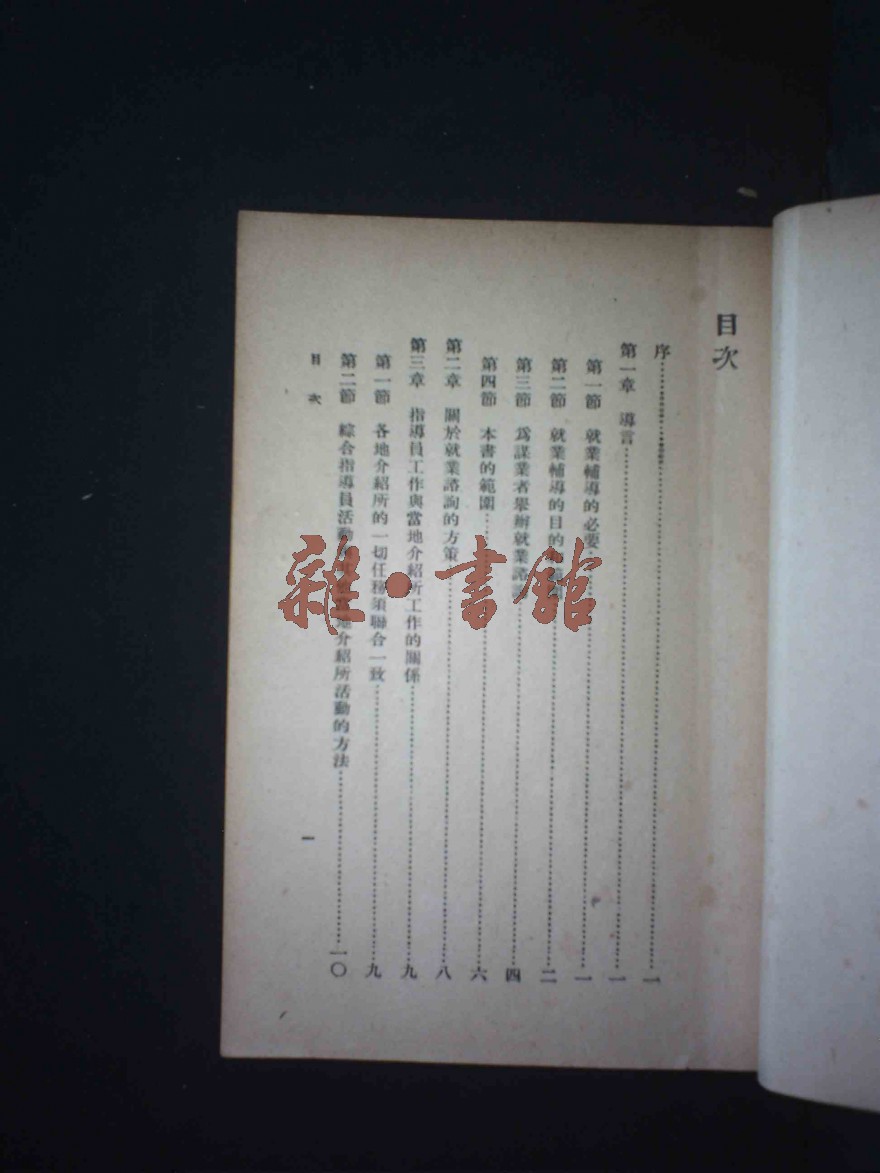 目次
序……一
第一章 導言……一
第一節 就業輔導的必要……一
第二節 就業輔導的目的……二
第三節 爲謀業者舉辦就業諮……四
第四節 本書的範圍……六
第二章 關於就業諮詢的方策……八
第三章 指導員工作與當地介紹所工作的關係……九
第一節 各地介紹所的一切任務須聯合一致……九
第二節 綜合指導員活動當地介紹所活動的方法……一〇
目次
一
雜·書館